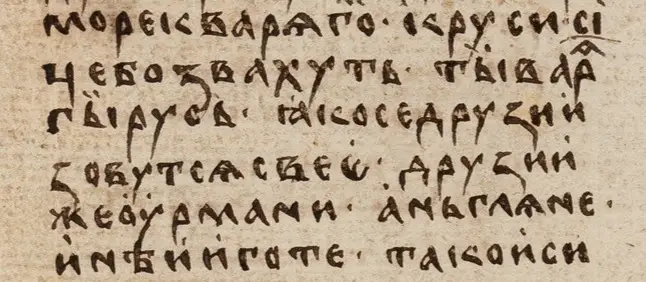 мореікварѧго · ікруси · сі
цебоꙁвахуть · тꙑіварѧ
гꙑірусь · ꙗікоседруꙁии
ꙁовутсѧсвеѡ · друꙁии
жеѹрмани · аньглѧне ·
инѣиготе · такоиси